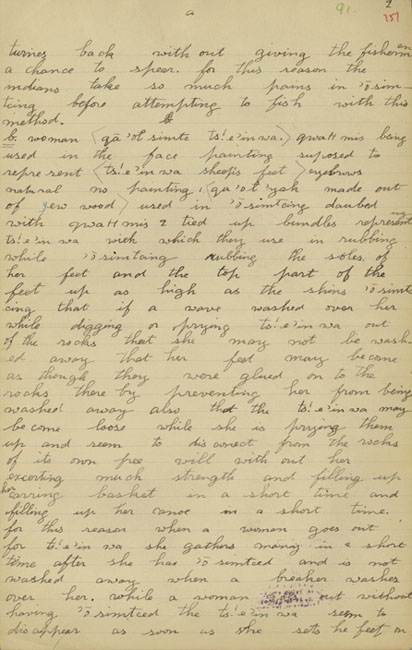 2
a
91.
157
turnes back with out giving the fisherman
a chance to spear. for this reason the
indians take so much pains in 'ō'sim-
tcing before attempting to fish with this
method.
b. woman (qā'ōt simtc ts!.e'in wa.) qwaH mis being
used in the face painting suposed to
represent (ts!.e'in wa sheeps feet) eyebrows
natural no painting, (qa'ōt'yak made out
of yew wood) used in 'ō'simtcing daubed
with qwaH mis 2 tied up bundles representing
ts!.e'in wa with which they use in rubbing
while 'ō'simtcing rubbing the soles of
her feet and the top part of the
feet up as high as the shins 'ō'simt
cing that if a wave washed over her
while digging or prying ts!.e'in wa out
of the rocks that she may not be wash-
ed away that her feet may become
as though they were glued on to the
rocks there by preventing her from being
washed away also that the ts!.e'in wa may
become loose while she is prizing them
up and seem to disconect from the rocks
of its own free will with out her
excerting much strength and filling up
her carring basket in a short time and
filling up her canoe in a short time.
for this reason when a woman goes out
for ts!.e'in wa she gathers many in a short
time after she has 'ō'simtced and is not
washed away when a breaker washes
over her. while a woman goes out without
having 'ō'simtced the ts!.e'in wa seem to
disappear as soon as she sets he feet on